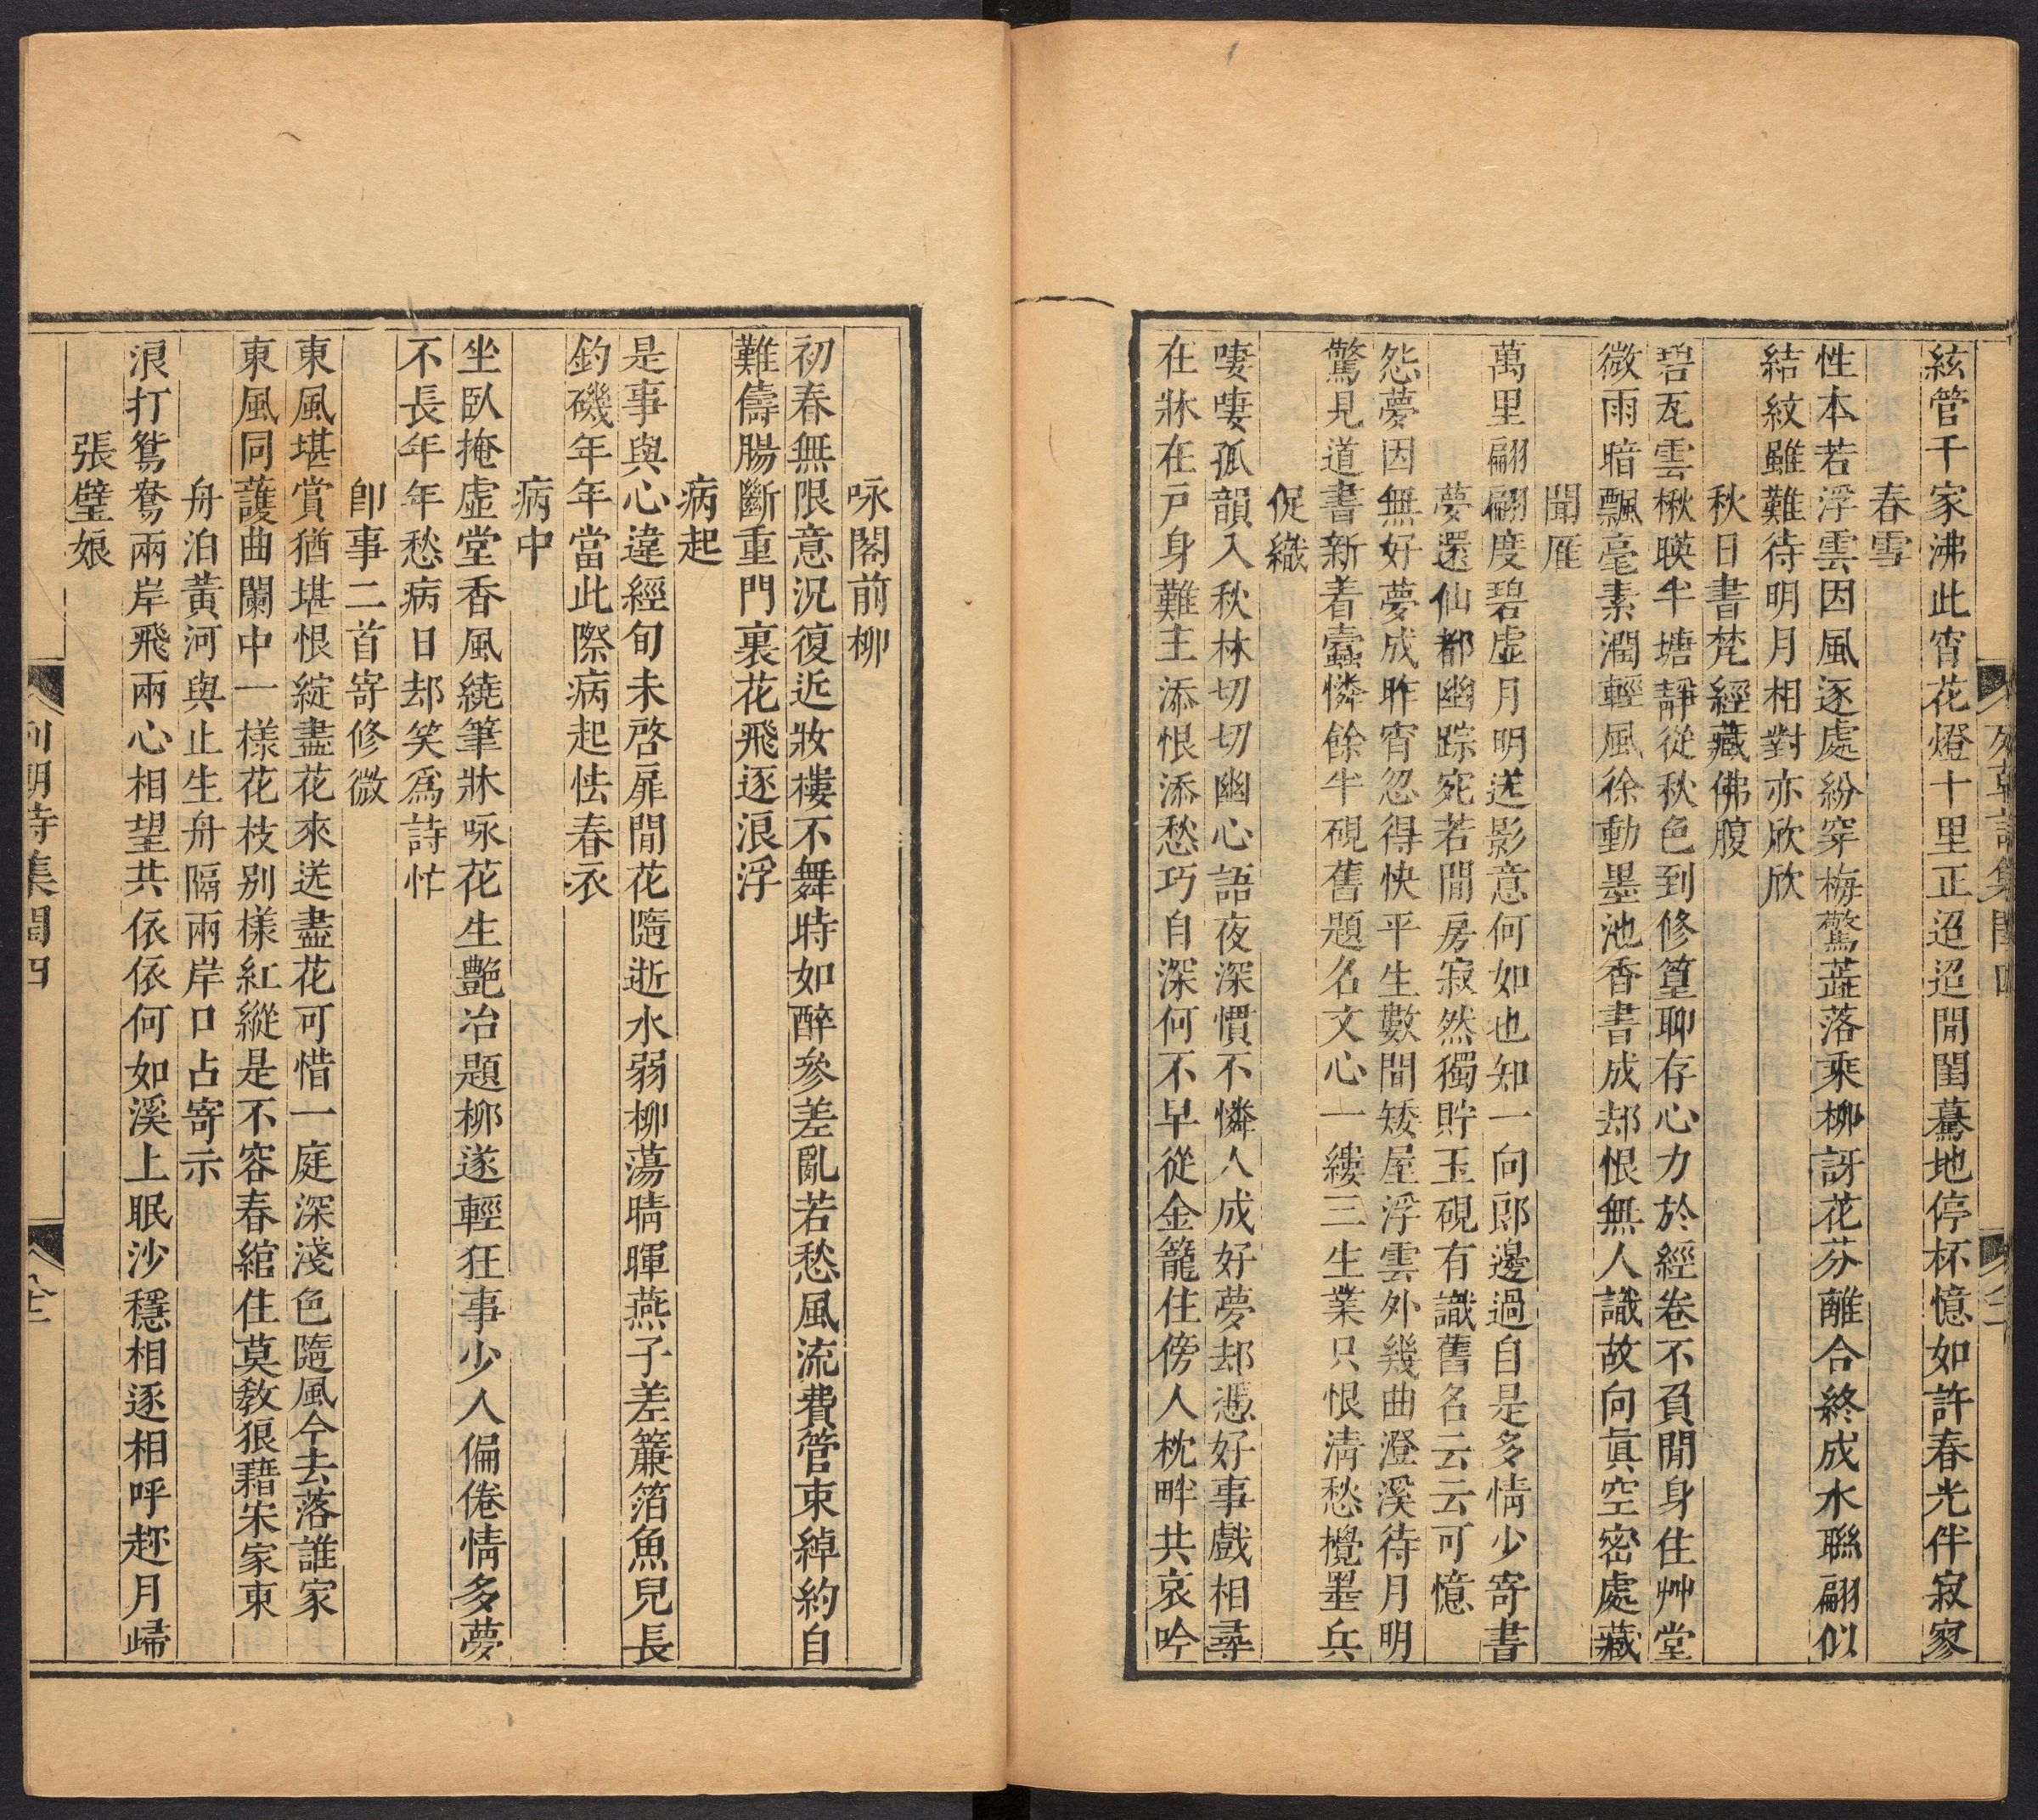 絃管千家沸此宵花燈十里正迢迢閒閨驀地停杯憶如許春光伴寂寥
春雪
性本若浮雲因風逐處紛穿梅驚蕋落乘柳訝花芬離合終成水聯翩似
結紋雖難待明月相對亦欣欣
秋日書梵經藏佛腹
碧瓦雲楸暎半塘靜從秋色到修篁聊存心力於經卷不負閒身住艸堂
微雨暗飄毫素潤輕風徐動墨池香書成却恨無人識故向眞空密處藏
聞雁
萬里翩翩度碧虛月明送影意何如也知一向郎邊過自是多情少寄書
夢還仙都幽踪宛若閒房寂然獨貯玉硯有識舊名云云可憶
怨夢因無好夢成昨宵忽得快平生數間矮屋浮雲外幾曲澄溪待月明
驚見道書新着蠹憐餘半硯舊題名文心一縷三生業只恨淸愁攪墨兵
促織
啛啛孤韻入秋林切切幽心語夜深慣不憐人成好夢却憑好事戲相尋
在牀在戸身難主添恨添愁巧自深何不早從金籠住傍人枕畔共哀吟
列朝詩集閏四
咏閣前柳
初春無限意況復近妝樓不舞時如醉參差亂若愁風流費管束綽約自
難儔腸斷重門裏花飛逐浪浮
病起
是事與心違經旬未啓扉閒花隨逝水弱柳蕩晴暉燕子差簾箔魚兒長
釣磯年年當此際病起怯春衣
病中
坐臥掩虛堂香風繞筆牀咏花生艷冶題柳遂輕狂事少人偏倦情多夢
不長年年愁病日却笑爲詩忙
卽事二首寄修微
東風堪賞猶堪恨綻盡花來送盡花可惜一庭深淺色隨風今去落誰家
東風同護曲闌中一樣花枝别樣紅縱是不容春綰住莫敎狼藉宋家東
舟泊黃河與止生舟隔兩岸口占寄示
浪打鴛鴦兩岸飛兩心相望共依依何如溪上眠沙穩相逐相呼趂月歸
張璧娘
列朝詩集閏四